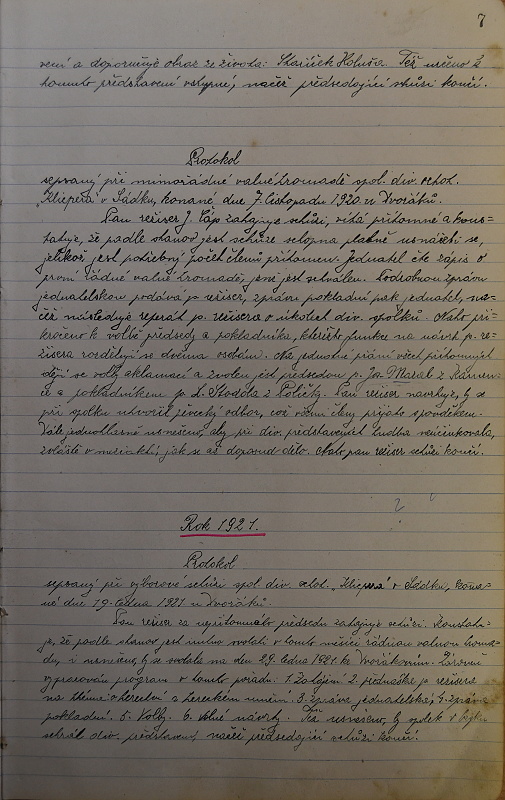 7
vení a doporučuje obraz ze života: Staříček Holuša. Též určeno k
tomuto představení vstupné, načež předsedající schůzi končí.
Protokol
sepsaný při mimořádné valné hromadě spol. div. ochot.
„Klicpera" v Sádku, konané dne 7. listopadu 1920 u Dvořáků.
Pan režiser J. Čáp zahajuje schůzi, vítá přítomné a kons-
tatuje, že podle stanov jest schůze schopna platně usnášeti se,
jelikož jest potřebný počet členů přítomen. Jednatel čte zápis o
první řádné valné hromadě, jenž jest schválen. Podrobnou zprávu
jednatelskou podává p. režiser, zprávu pokladní pak jednatel, na-
čež následuje referát p. režisera o úkolech div. spolků. Nato při-
kročeno k volbě předsedy a pokladníka, kterážto funkce na návrh p. re-
žisera rozdělují se dvěma osobám. Na jednotné přání všech přítomných
dějí se volby aklamací a zvolen jest předsedou p. Jos. Mazal z Kamen-
ce a pokladníkem p. L. Stodola z Poličky. Pan režiser navrhuje, by se
při spolku utvořil pěvecký odbor, což všemi členy přijato s povděkem.
Dále jednohlasně usneseno, aby při div. představeních hudba neúčinkovala,
zvláště v mezi aktí, jak se až doposud dělo. Nato pan režiser schůzi končí.
?
Rok 1921.
Protokol
sepsaný při výborové schůzi spol. div. ochot. „Klicpera" v Sádku, kona-
né dne 19. ledna 1921 u Dvořáků.
Pan režiser za nepřítomného předsedu zahajuje schůzi. Konstatu-
je, že podle stanov jest nutno svolati v tomto měsíci řádnou valnou hroma-
du, i usneseno, by se svolala na den 29. ledna 1921 ke Dvořákovům.
vypracován program v tomto pořadu: 1. Zahájení 2. přednáška p. režisera
na thema: o herectví a hereckém umění. 3. zpráva jednatelská, 4. zpráva
pokladní. 5. Volby. 6. Volné návrhy. Též usneseno, by spolek v
sehrál div. představení, načež předsedající schůzi končí.